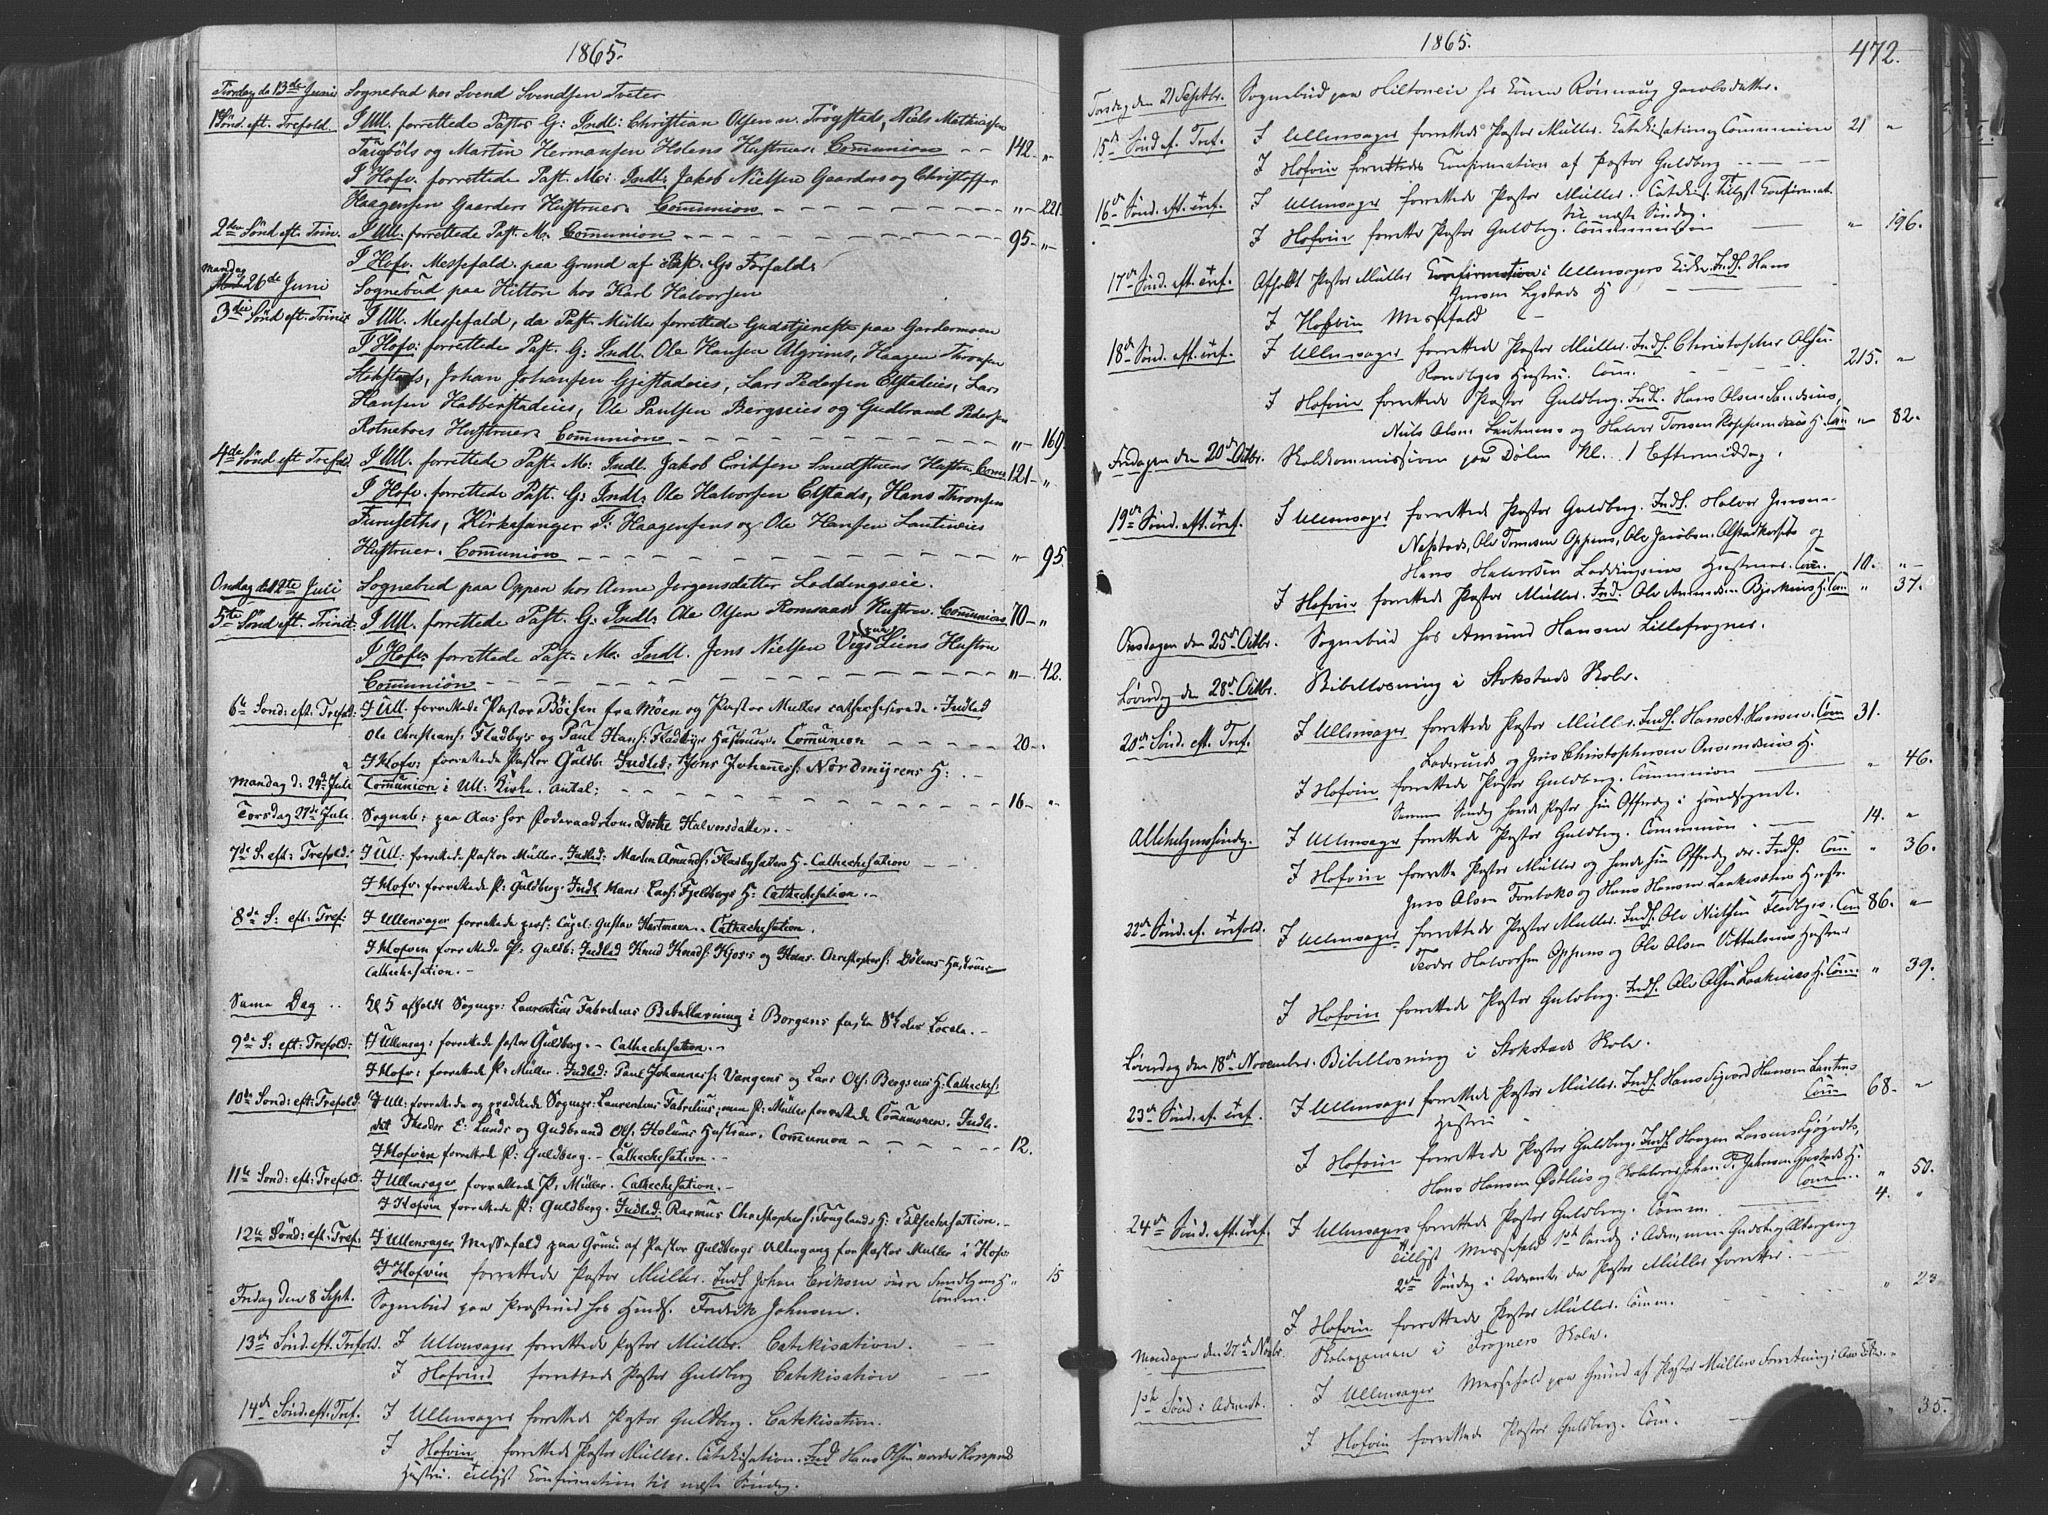 1865.
Tirsdag d. 13de Juni Sognebud hos Svend Svendsen Tveter
1ste Sönd. eft. Trefold. I Ull. forrettede Pastor G: Indl: Christian Olsen n. Trögstads, Niels Mathiesen
og Martin Hermansen Holens Hustruer. Communion 142 "
I Hofv. forrettede Past. M: Indl: Jakob Nielsen Gaarders og Christoffer
Haagensen Gaarders Hustruer. Communion " 221
2den Sönd eft. Trin. I Ull. forrettede Past. M. Communion 95 "
I Hofv. Messefald paa Grund af Past. Gs Forfald
Mandag 26de Juni Sognebud paa Hilton hos Karl Halvorsen
3die Sönd eft. Trinit. I Ull. Messefald, da Past. Müller forrettede Gudstjeneste paa Gardermoen
I Hofv: forrettede Past. G: Indl. Ole Hansen Algrims, Haagen Thronsen
Stokstads, Johan Johansen Gjestadeies, Lars Pedersen Elstadeies, Lars
Hansen Habberstadeies, Ole Paulsen Bergseies og Gudbrand Pedersen
Rotneboes Hustruer. Communion " 169
4de Sönd eft Trefold I Ull. forrettede Past. M: Indl. Jakob Eriksen Smedstuens Hustru Comm. 121 "
I Hofv. forrettede Past. G: Indl: Ole Halvorsen Elstads, Hans Thronsen
Furuseths, Kirkesanger F: Haagensens og Ole Hansen Lautineies
Hustruer. Communion " 95
Onsdag d. 12te Juli Sognebud paa Oppen hos Anne Jørgensdatter Loddingseie.
5te Sönd eft. Trinit. I Ull. forrettede Past. G: Indl: Ole Olsen Romsaas Hustru. Communion 70 "
I Hofv: forrettede Past. M. Indl. Jens Nielsen Hustru
Communion " 42.
6te Sönd: eft: Trefold: I Ull. forrettede Pastor Böisen fra Moen og Pastor Müller cathechiserede. Indled
Ole Christians: Fladbys og Paul Hans: Fladbys Hustruer. Communion 20
I Hofv: forrettede Pastor Guldb: Indled: Jons Johanness: Nordmyrens H:
Mandag d: 24de Juli Communion i Ull: Kirke. Antal: 16 "
Torsdag 27de Juli Sogneb: paa Aas hos Dorthe Halvorsdatter.
7de S: eft: Trefold: I Ull: forrettede Pastor Müller. Indled: Martin Amunds: Fladbysæters H. Cathechesation
I Hofv: forrettede P: Guldberg. Indl. Hans Lars: Fjeldbergs H: Cathechesation.
8de S: eft: Tref: I Ullensager forrettede pers: Capel: Gustav Hartmann. Cathechesation.
I Hofvin forrettede P: Guldb: Indled Knud Knuds: Hjoss og Hans Christophers: Dölens Hustruer
Cathechesation.
Same Dag Kl 5 afholdt Sognepr: Laurentius Fabritius Bibellæsning i Borgens faste Skoles Locale.
9de S: eft: Trefold: I Ullensag: forrettede Pastor Guldberg. Cathechesation.
I Hofv: forrettede P: Müller. Indled: Paul Johanness: Vangens og Lars Ols: Bergseies H: Cathechs:
10de Sönd: eft: Trefold. I Ull: forrettede og prædikede Sognepr: Laurentius Fabritius, men P: Müller forrettede Communionen. Indle-
det Theodor E: Lunds og Gudbrand Ols: Holums Hustruer. Communion 12.
I Hofvin forrettede P: Guldberg. Cathechesation.
11te Sönd: eft: Trefold. I Ullensager forrettede P: Müller. Cathechesation.
I Hofvin forrettede P: Guldberg. Indled: Rasmus Christophers: Fuglands H: Cathechesation.
12te Sönd: eft: Tref. I Ullensager Messefald paa Grund af Pastor Guldbergs Altergang for Pastor Müller i Hofv:
I Hofvin forrettede Pastor Müller. Indl. Johan Eriksen övre Sundbyens H " 15
Comm.
Fredag den 8 Sept. Sognebud paa hos Fredrik Johnsen.
13de Sönd. eft. Trefold. I Ullensager forrettede Pastor Müller. Catekisation.
I Hofvind forrettede Pastor Guldberg Catekisation
14de Sönd. eft. Tref. I Ullensager forrettede Pastor Guldberg. Catekisation.
I Hofvin forrettede Pastor Müller. Catekisation. Ind Hans Olsen nordre
Hustru. Tillyst Confirmation til næste Söndag.
1865.
472.
Torsdag den 21 Septbr. Sognebud paa Hiltoneie hos Konen Rönnaug Jacobsdatter.
15de Sönd. ef. Tref. I Ullensager forrettede Pastor Müller. Catekisation og Communion 21 "
I Hofvin forrettedes Confirmation af Pastor Guldberg.
16de Sönd. eft. tref. I Ullensager forrettede Pastor Müller. Catekis. Tillyst Confirmat.
til næste Söndag.
I Hofvin forrettede Pastor Guldberg. Communion " 196.
17de Sönd. eft. tref. Afholdt Pastor Müller Confirmation i Ullensagers Kirke. Indl. Hans
Jensen Lystads H
I Hofvin Messefald
18de Sönd. eft. tref. I Ullensager forrettede Pastor Müller. Indl. Christopher Olsen
Hustru. Com. 215. "
I Hofvin forrettede Pastor Guldberg. Indl. Hans Olsen
Niels Olsen Lautineies og Halvor Torsen H. Com " 82.
Fredagen den 20de Octbr. Skolekommission paa Dölen Kl. 1 Eftermiddag.
19de Sönd. eft. tref. I Ullensager forrettede Pastor Guldberg. Indl. Halvor Jensen
Ole Tronsen Oppens, Ole Jacobsen og
Hans Halvorsen Loddingseies Hustruer. Com. 10. "
I Hofvin forrettede Pastor Müller. Ind. Ole Amundsen Bjerkeeies H. Com " 37.
Onsdagen den 25de Octbr. Sognebud hos Amund Hansen Lillefrogner.
Löverdag den 28de Octbr. Bibellæsning i Stokstads Skole.
20de Sönd. eft. Tref. I Ullensager forrettede Pastor Müller. Indl. Hans A. Hansen Com 31.
og Jens Christophersen H.
I Hofvin forrettede Pastor Guldberg. Communion " 46.
Samme Söndag havde Pastor sin Offerdag i Hovedsognet.
Allehelgenssöndag. I Ullensager forrettede Pastor Guldberg. Communion. 14. "
I Hofvin forrettede Pastor Müller og havde sin Offerdag der. Indl. Com " 36.
Jens Olsen og Hans Hansen Hustr.
22de Sönd. ef. trefold. I Ullensager forrettede Pastor Müller. Indl. Ole Nielsen Fladbyes. Com 86. "
Halvorsen Oppens og Ole Olsen Hustruer
I Hofvin forrettede Pastor Guldberg. Indl. Ole Olsen H. Com. " 39.
Löverdag den 18de November. Bibellæsning i Stokstads Skole.
23de Sönd. ef. tref. I Ullensager forrettede Pastor Müller. Indl. Hans Sigvard Hansen
Hustru Com 68. "
I Hofvin forrettede Pastor Guldberg. Indl. Haagen Larsens
Hans Hansen og Johan P. Johnsen Gjestads H.
Comm. " 50.
24de Sönd. eft. tref. I Ullensager forrettede Pastor Guldberg. Comm. 4. "
Tillyst Messefald 1ste Sönd. i Adv., men Gudstj. og Altergang
2den Söndag i Advent, da Pastor Müller forretter.
I Hofvin forrettede Pastor Müller. Comm. " 23
Mandagen den 27de Novbr. Skoleexamen i Frogners Skole.
1ste Sönd i Advent. I Ullensager Messefald paa Grund af Pastor Müllers Forretning i
I Hofvin forrettede Pastor Guldberg. Com. " 35.